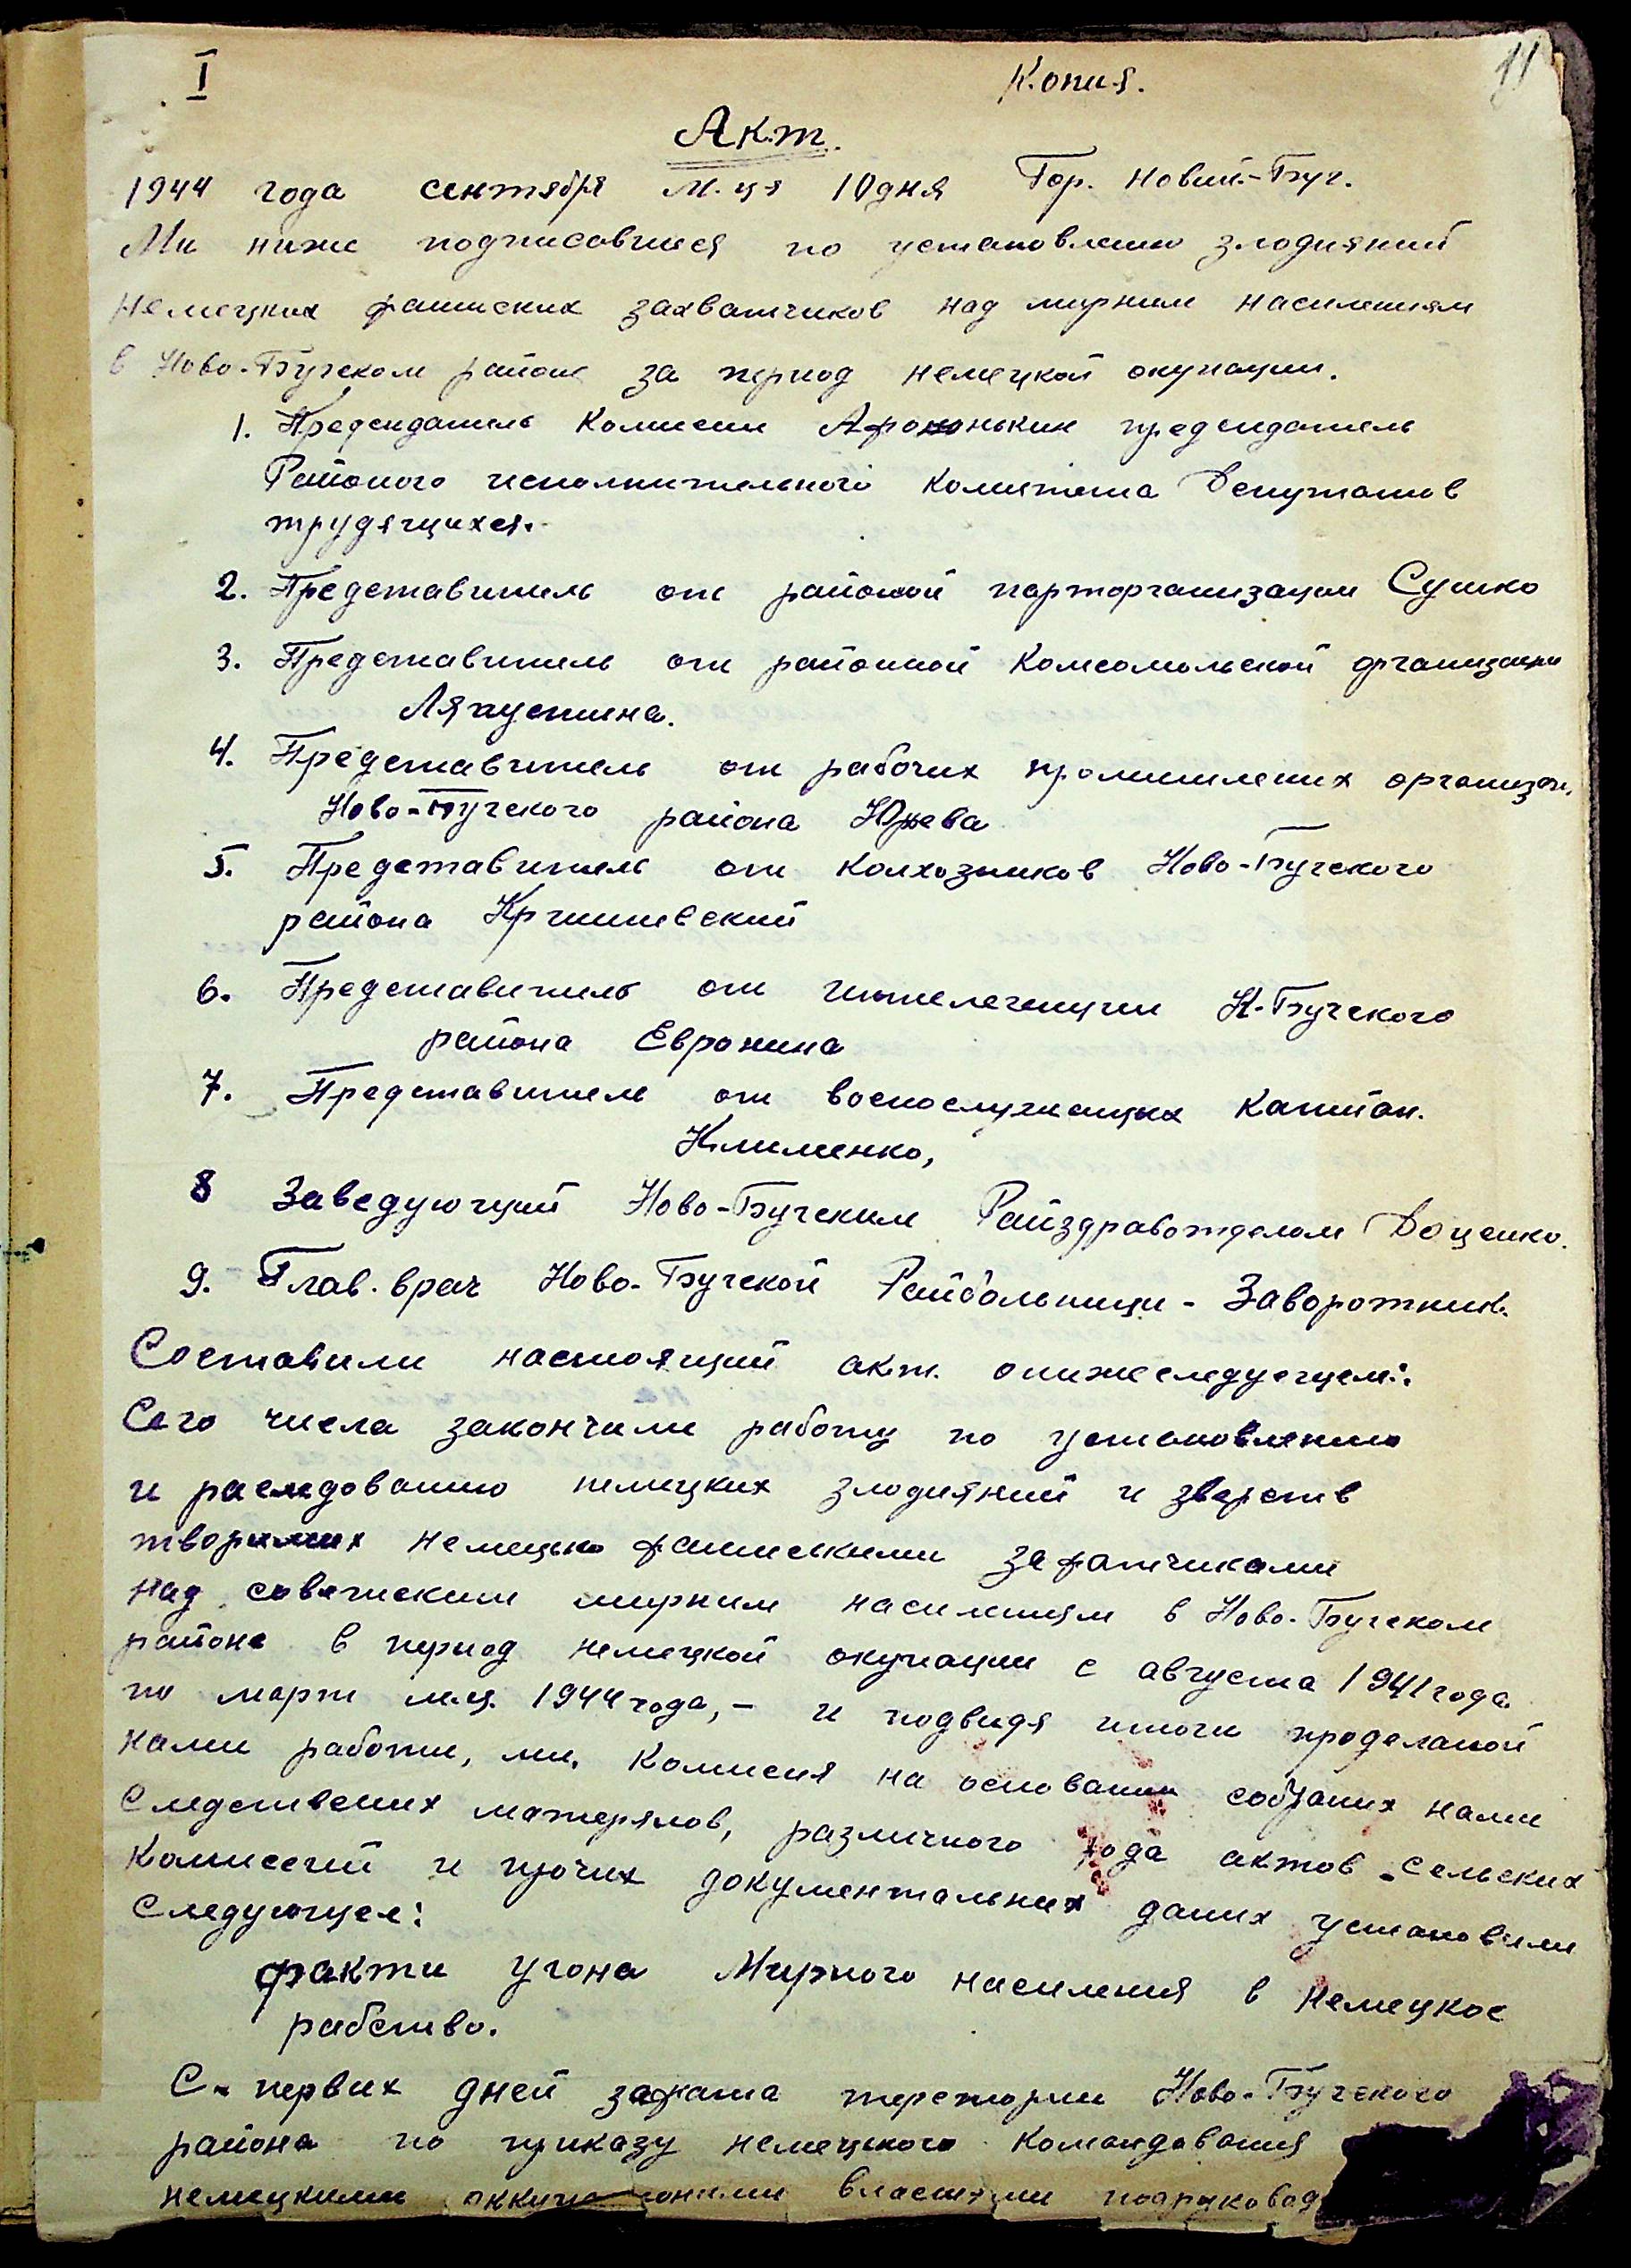 I
Копия.
11
Акт.
1944 года сентября м.ця 10 дня Гор. Новий-Буг.
Ми ниже подписавшиеся по установлению злодияний
немецких фашиских захватчиков над мирним насилениям
в Ново-Бугском районе за период немецкой окупации.
1. Председатель Комисии Афононькин председатель
Районого исполнительного комитета Депутатов
трудящихся.
2. Представитель от районой парторганизации Сушко
3. Представитель от районной Комсомольской организации
Ляпустина.
4. Представитель от рабочих промишлених организац.
Ново-Бугского района Юрева
5. Представитель от колхозников Ново-Бугского
района Кришивский
6. Представитель от интелегенции Н-Бугского
района Евронина
7. Представитель от воснослужащих капитан.
Клименко,
8 Заведующий Ново-Бугским Райздравотделом Доценко.
9. Глав. врач Ново-Бугской Райбольници - Заворотник.
Составили настоящий акт. онижеследующем:.
Сего числа закончили работу по установлению
и раследованию немецких злодияний и зверств
творимих немецько фашиськими зафатчиками
над советиским мирним насилениям в Ново-Бугском
районе в период немецкой окупации с августа 1941 года
по март м.ц. 1944 года, - и подвидя итоги проделаной
нами работи, ми, Комисия на основании собраних нами
Следствених матерялов, различного рода актов Сельских
Комиссий и прочих документальних даних установили
Следующее:
факти угона Мирного насиления в Немецкое
рабство.
С первих дней зафата теретории Ново-Бугского
района по приказу немецкого Командования
немецкими властями